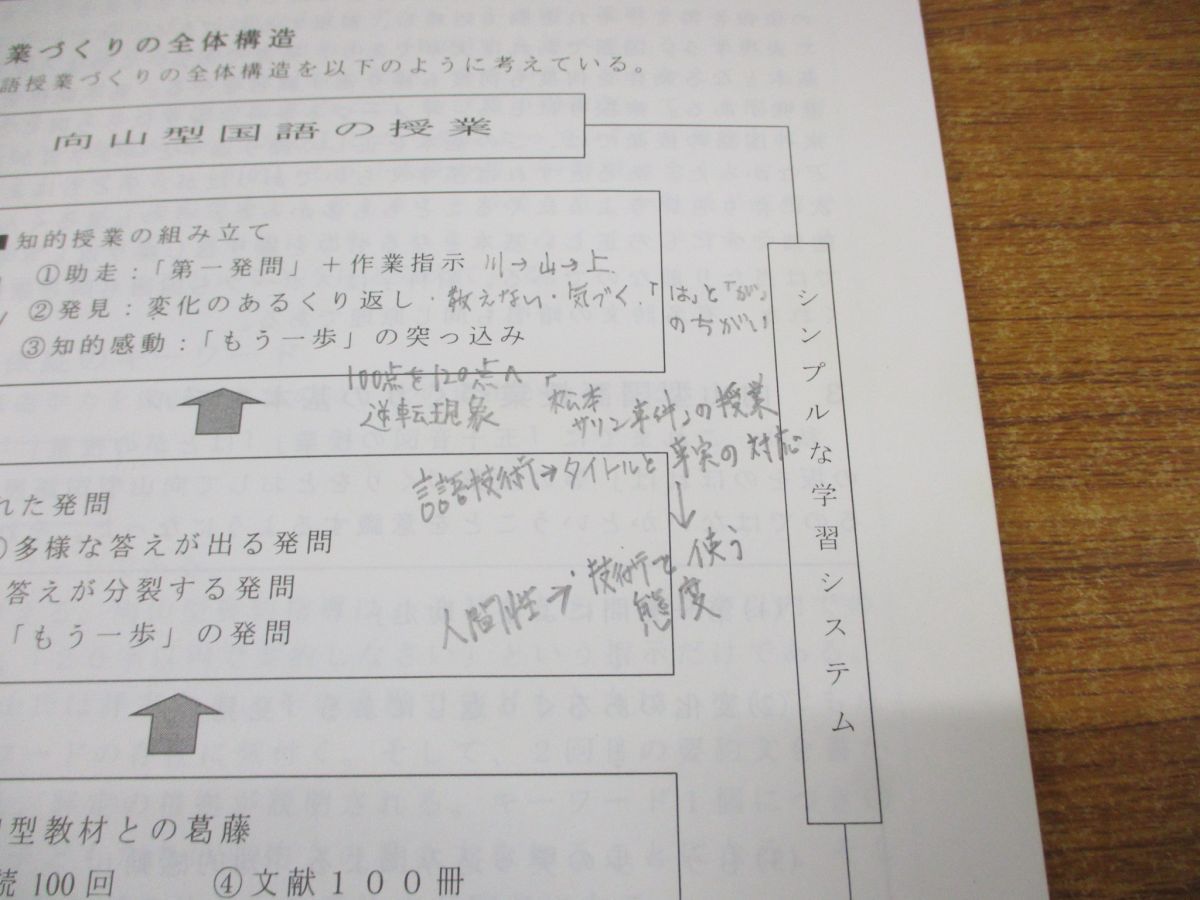 業づくりの全体構造
語授業づくりの全体構造を以下のように考えている。
向山型国語の授業
■知的授業の組み立て
①助走：「第一発問」＋作業指示 川→山→上
②発見：変化のあるくり返し・教えない・気づく.「は」と「が」
のちがい
③知的感動：「もう一歩」の突っ込み
100点を120点へ
逆転現象
「松本
サリン事件」の授業
言語技術→タイトルと事実の対応
↓
人間性→技術を使う
態度
れた発問
多様な答えが出る発問
答えが分裂する発問
「もう一歩」の発問
シンプルな学習システム
型教材との葛藤
続100回 ④文献１００冊